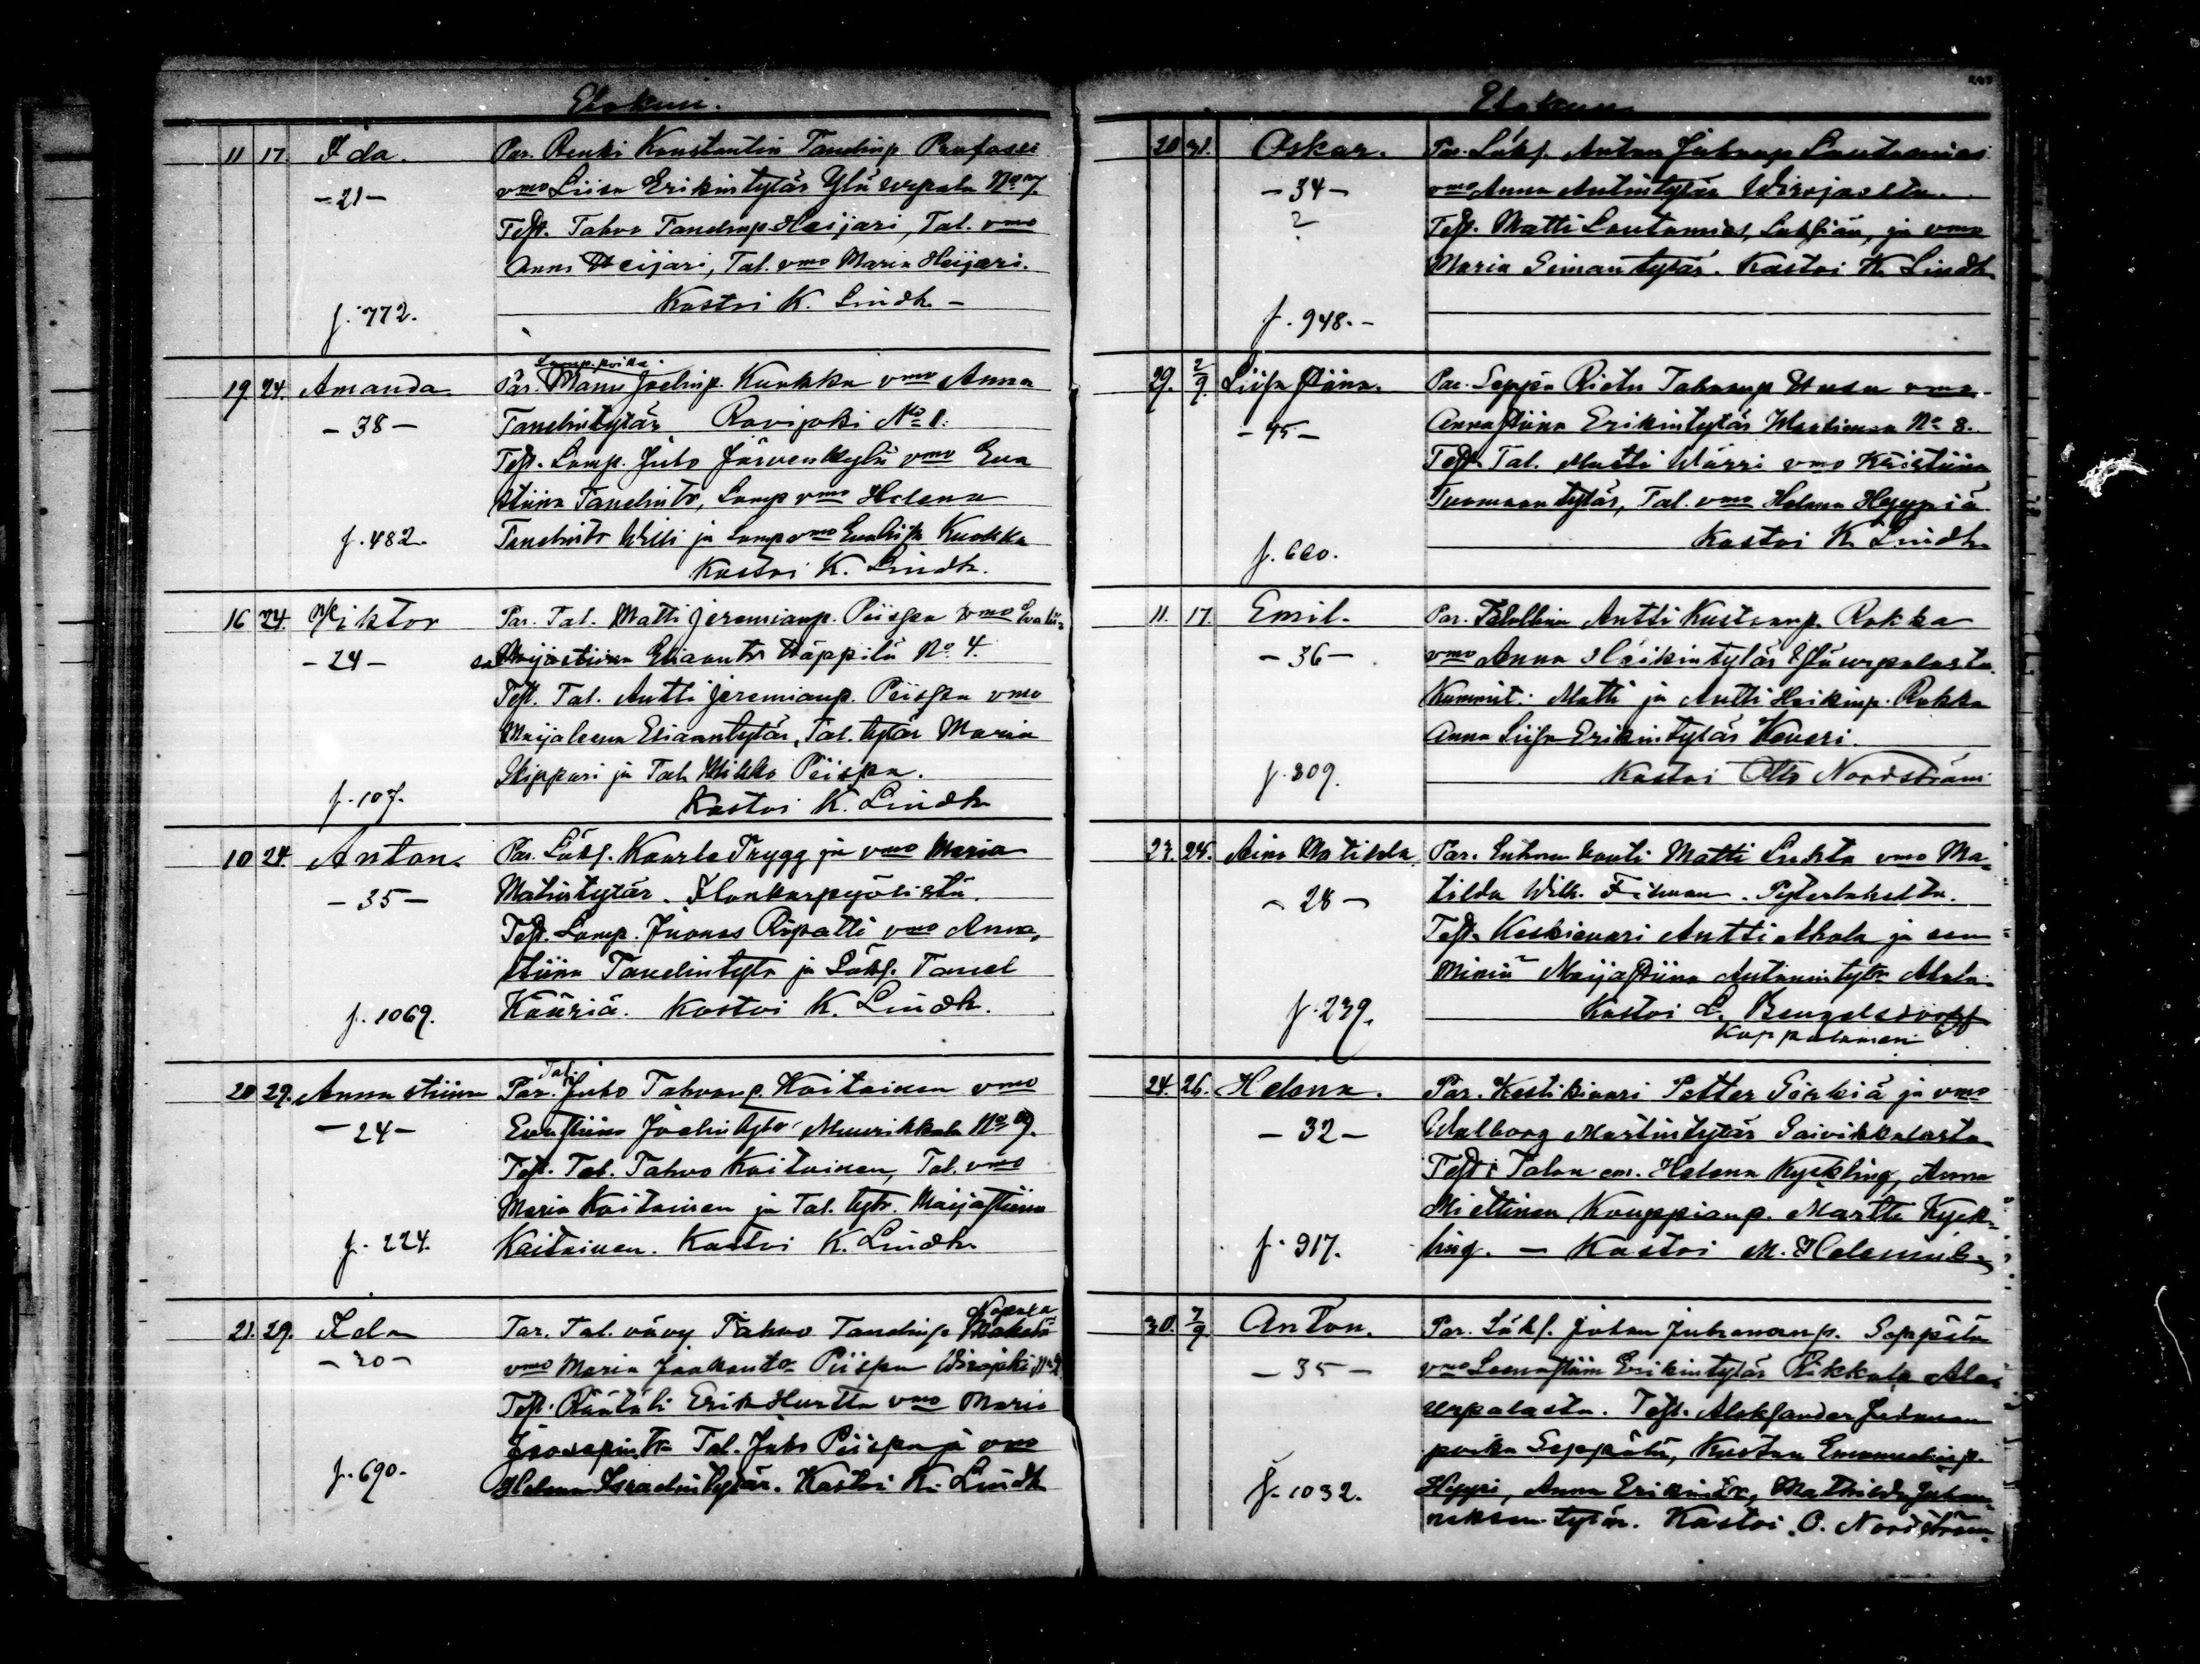 Elokuu.
11 17. Ida. Par. Renki Konstantin Taneling
-21- vmo Liisa Erikintytär Ylä Urpala No 7.
Test. Tahvo Tanelinp. Heijari, Tal. vmo
Anna Heijari, Tal. vmo Maria Heijari.
f. 772. Kastoi K. Lindh. -
Lamp. poika.
19 24. Amanda. Par. Manu Joelinp. Kuokka vmo Anna
-38- Tanelintytär Ravijoki No 1.
Test. Lamp. Juho Järvenkylä vmo Eva
Stiina Tanelintr, Lamp vmo Helena
f. 482. Tanelintr Willi ja Lamp vmo Evaliisa Kuokka
Kastoi K. Lindh.
16 24. Viktor Par. Tal. Matti Jeremianp. Piispa vmo
-24- Maijastiina Elianntr Häppilä No. 4.
Test. Tal. Antti Jeremianp. Piispa vmo
Maijaleena Eliaantytär, Tal. tytär Maria
Skippari ja Tal. Mikko Piispa.
f. 107. Kastoi K. Lindh
10 24. Anton. Par. Läksf. Kaarle Trygg ja vmo Maria
-35- Matintytär. Honkarpyölistä.
Test. Lamp. Juonas Ripatti vmo Anna,
stiina Tanelintytr ja Läksf. Tanel
f. 1069. Kääriä. Kastoi K. Lindh.
Tal.
20 29. Anna Stiina Par. Juho Tahvanp. Koitainen vmo
-24- Evastiina Joelintytr Muurikkala No 9.
Test. Tal. Tahvo Kaitainen, Tal. vmo
Maria Kaitainen ja Tal. tytr. Maijastiina
f. 224. Kaitainen. Kastoi K. Lindh.
21. 29. Ida Par. Tal. vävy Tahvo Tanelinp
-20- vmo Maria Jaakontr Piispa Wirojoki
Test. Räätäli Erik Hurtta vmo Maria
Joosepintr Tal. Juho Piispa ja vmo
f. 690. Helena Israelintytär. Kastoi K. Lindh
Elokuu
20 31. Oskar. Par. Läksf. Anton Juhanp Lautamies
-34- vmo Anna Antintytär Wirojoelta.
? Test. Matti Lautamies, Läksiän, ja vmo
Maria Simuntytär. Kastoi K. Lindh
f. 948. -
29. 2/9. Liisa Stiina. Par. Seppä Rietu Tahvanp Husu vmo
-45- Anna Stiina Erikintytär Martinsaa No 8.
Test. Tal. Matti Wärri vmo Kristiina
Tuomaantytär, Tal. vmo Helena Heyppiä
f. 660. Kastoi K. Lindh
11. 17. Emil. Par. Antti Kustaanp. Rokka
-36- vmo Anna Heikintytär Yläurpalasta.
Kummit: Matti ja Antti Heikinp. Rokka
Anna Liisa Erikintytär
f. 309. Kastoi Otto Nordström
23. 25. Aina Matilda Par. Matti Luhta vmo Ma-
-28- tilda Wilh. Pyterlahdelta.
Test. Keskievari Antti Ahola ja sen
miniä Maijastiina Antinintytr Ahola.
f. 239. Kastoi L. Bengelsdorff
Kappalainen
24. 26. Helena. Par. Kestikivari Petter Sirkiä ja vmo
-32- Walborg Martintytär Säivikkalasta
Test: Talon em. Helena Kyckling, Anna
Miettinen Kauppianp. Martti Kyck-
f. 917. ling. - Kastoi M. Helenius
30. 7/9 Anton. Par. Läksf. Johan Juhananp. Seppälä
-35- vmo Leenastiina Erikintytär Rikkola Ala-
urpalasta. Test. Aleksander Juhanan
poika Seppälä, Kustaa Emanuelinp.
Hyyri, Anna Erikintr, Mathilda Juhan-
f. 1032. neksentytär. Kastoi O. Nordström.